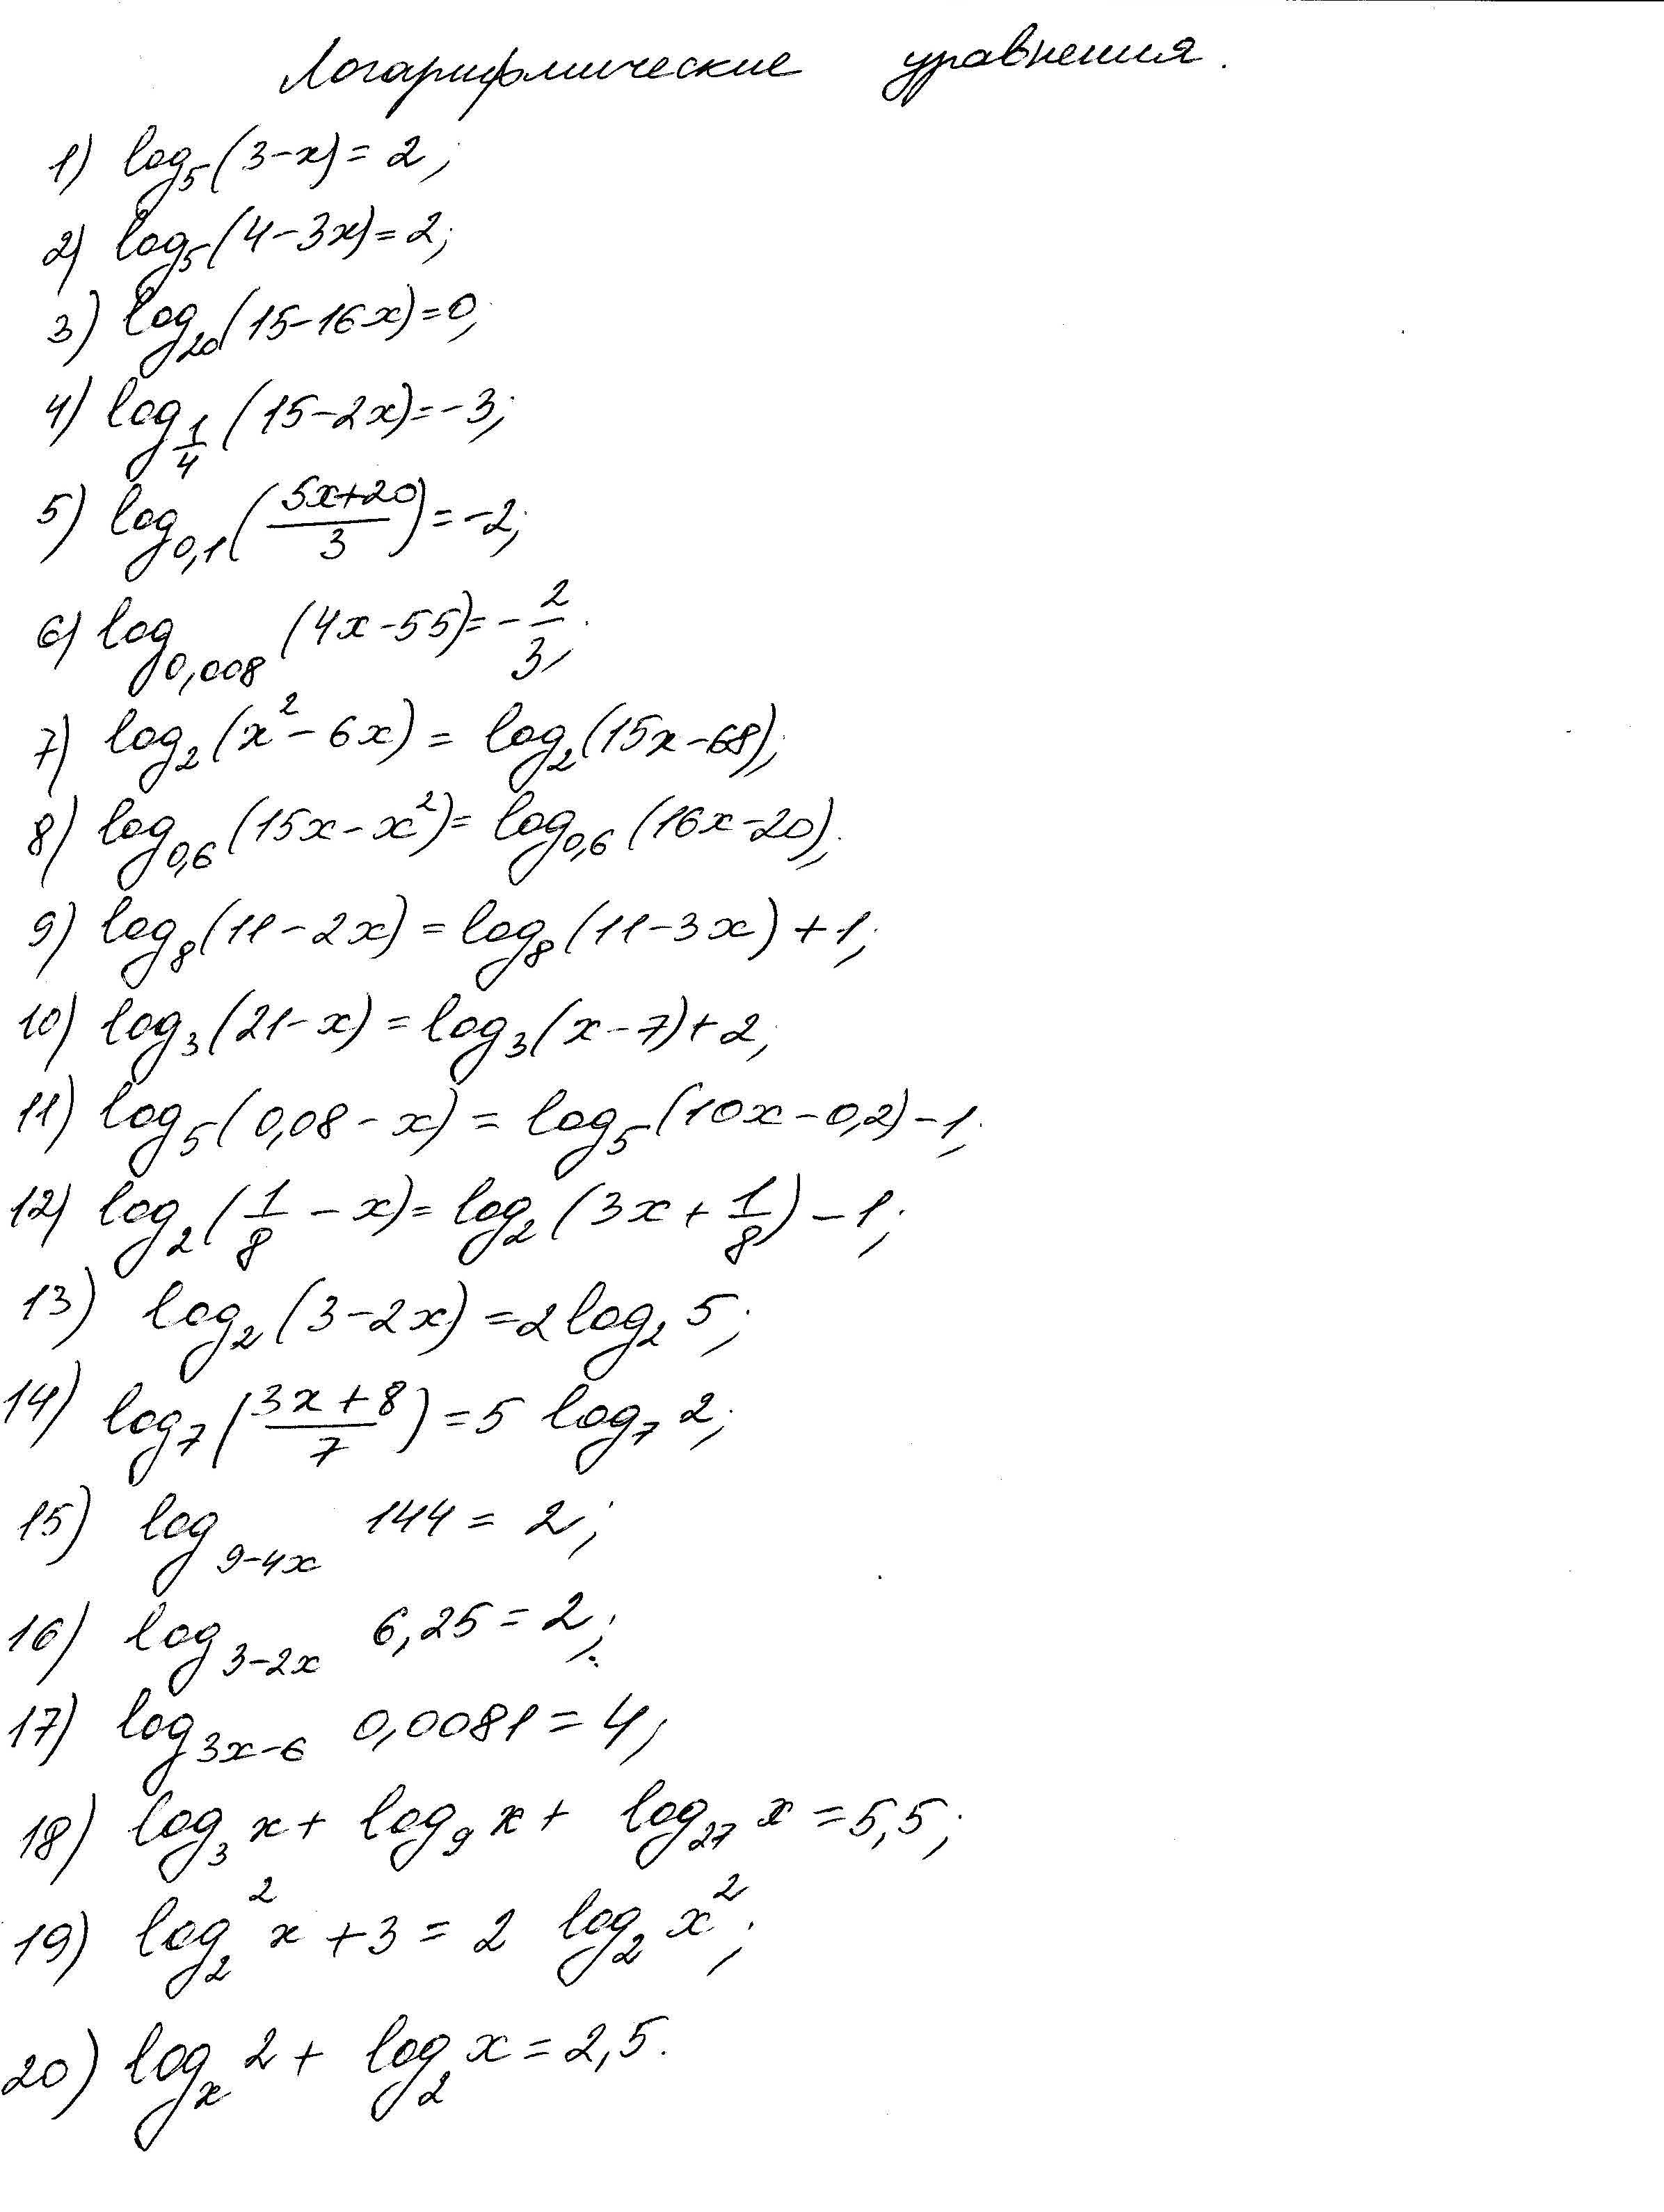 Логарифмические уравнения.
1) log₅(3-x)=2;
2) log₅(4-3x)=2;
3) log₂₀(15-16x)=0;
4) log_{1/4}(15-2x)=-3;
5) log_{0,1}((5x+20)/3)=-2;
6) log_{0,008}(4x-55)=-2/3;
7) log₂(x²-6x)=log₂(15x-68);
8) log_{0,6}(15x-x²)=log_{0,6}(16x-20);
9) log₈(11-2x)=log₈(11-3x)+1;
10) log₃(21-x)=log₃(x-7)+2;
11) log₅(0,08-x)=log₅(10x-0,2)-1;
12) log₂(1/8-x)=log₂(3x+1/8)-1;
13) log₂(3-2x)=2log₂5;
14) log₇((3x+8)/7)=5 log₇2;
15) log_{9-4x} 144=2;
16) log_{3-2x} 6,25=2;
17) log_{3x-6} 0,0081=4;
18) log₃x+log₉x+log₂₇x=5,5;
19) log₂²x+3=2 log₂x²;
20) logₓ2+log₂x=2,5.